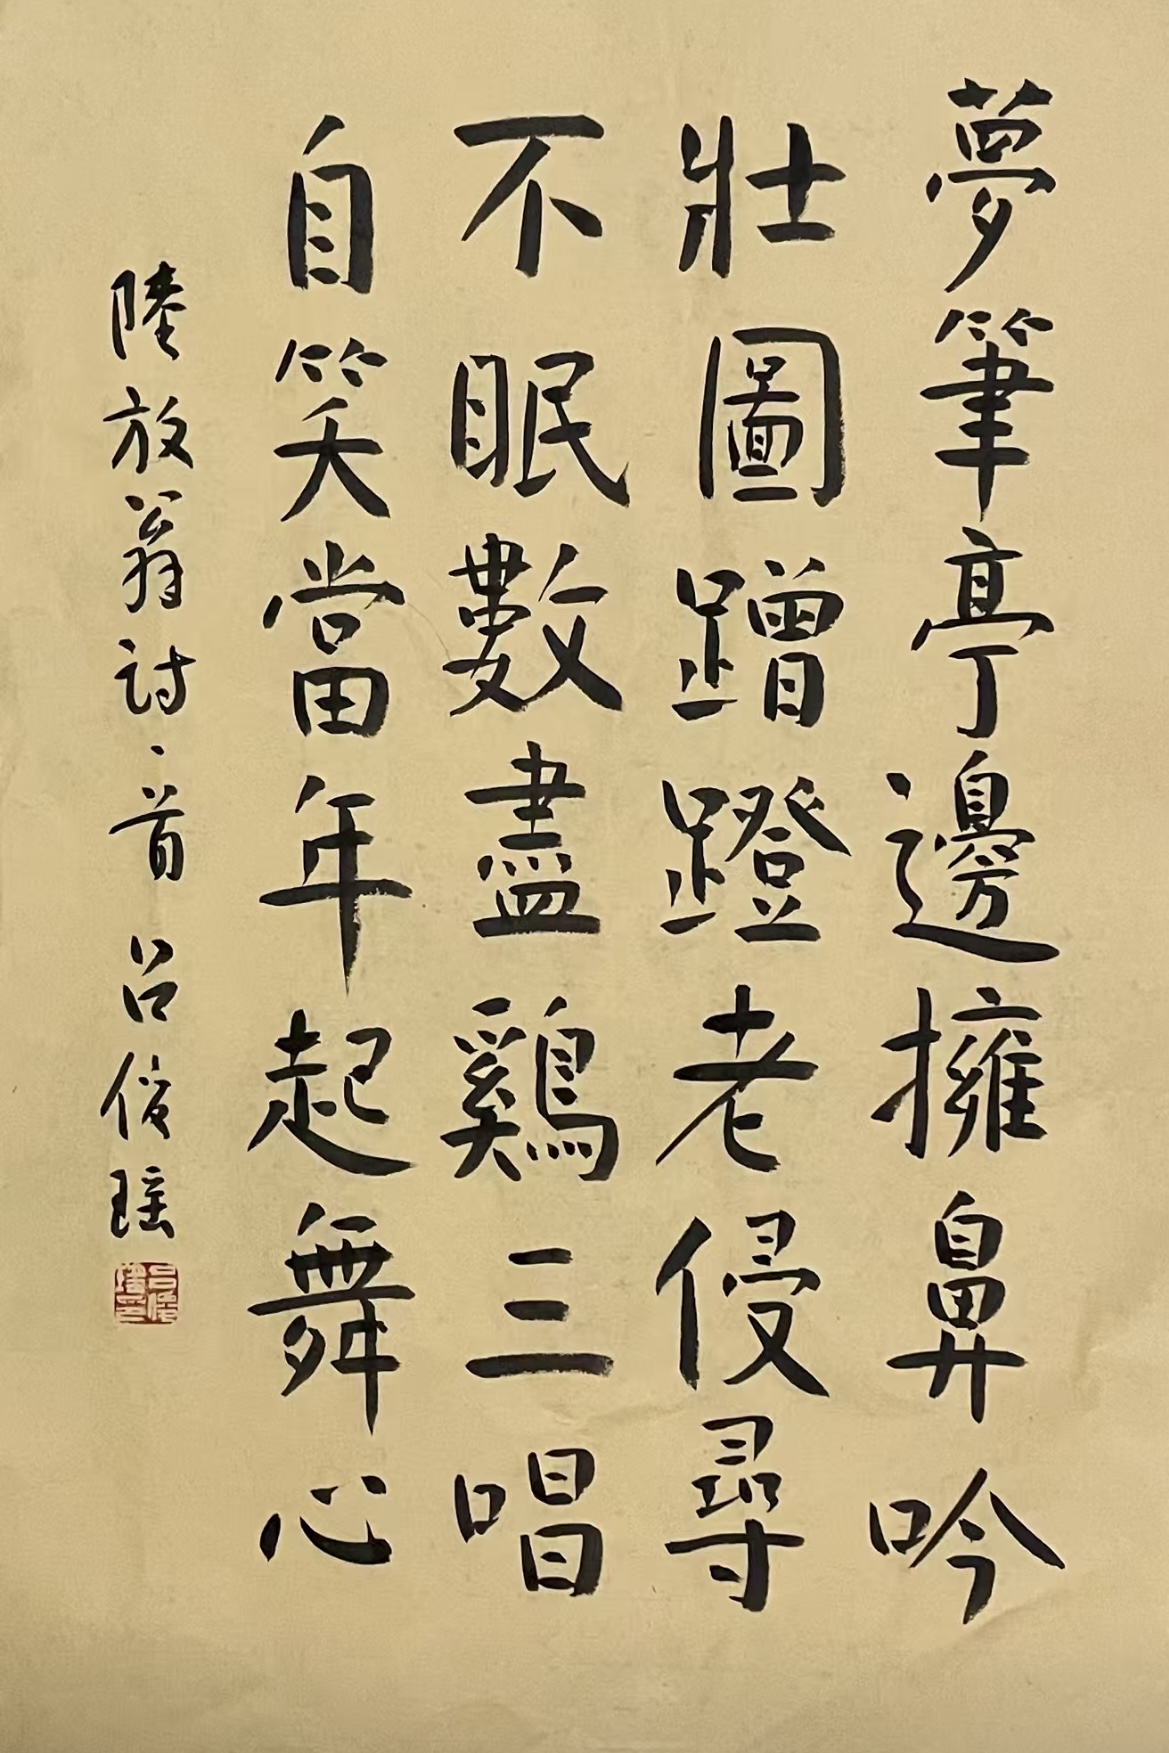 夢筆亭邊擁鼻吟
壯圖蹭蹬老侵尋
不眠數盡鷄三唱
自笑當年起舞心
陸放翁詩一首 呂俊瑶